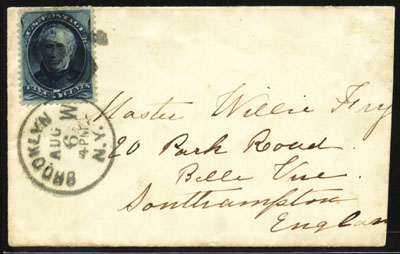 U.S. POSTAGE
FIVE 5 CENTS
BROOKLYN N.Y.
AUG
6
4 PM
W
Master Willie Fry
20 Park Road.
Belle Vue.
Southampton
England